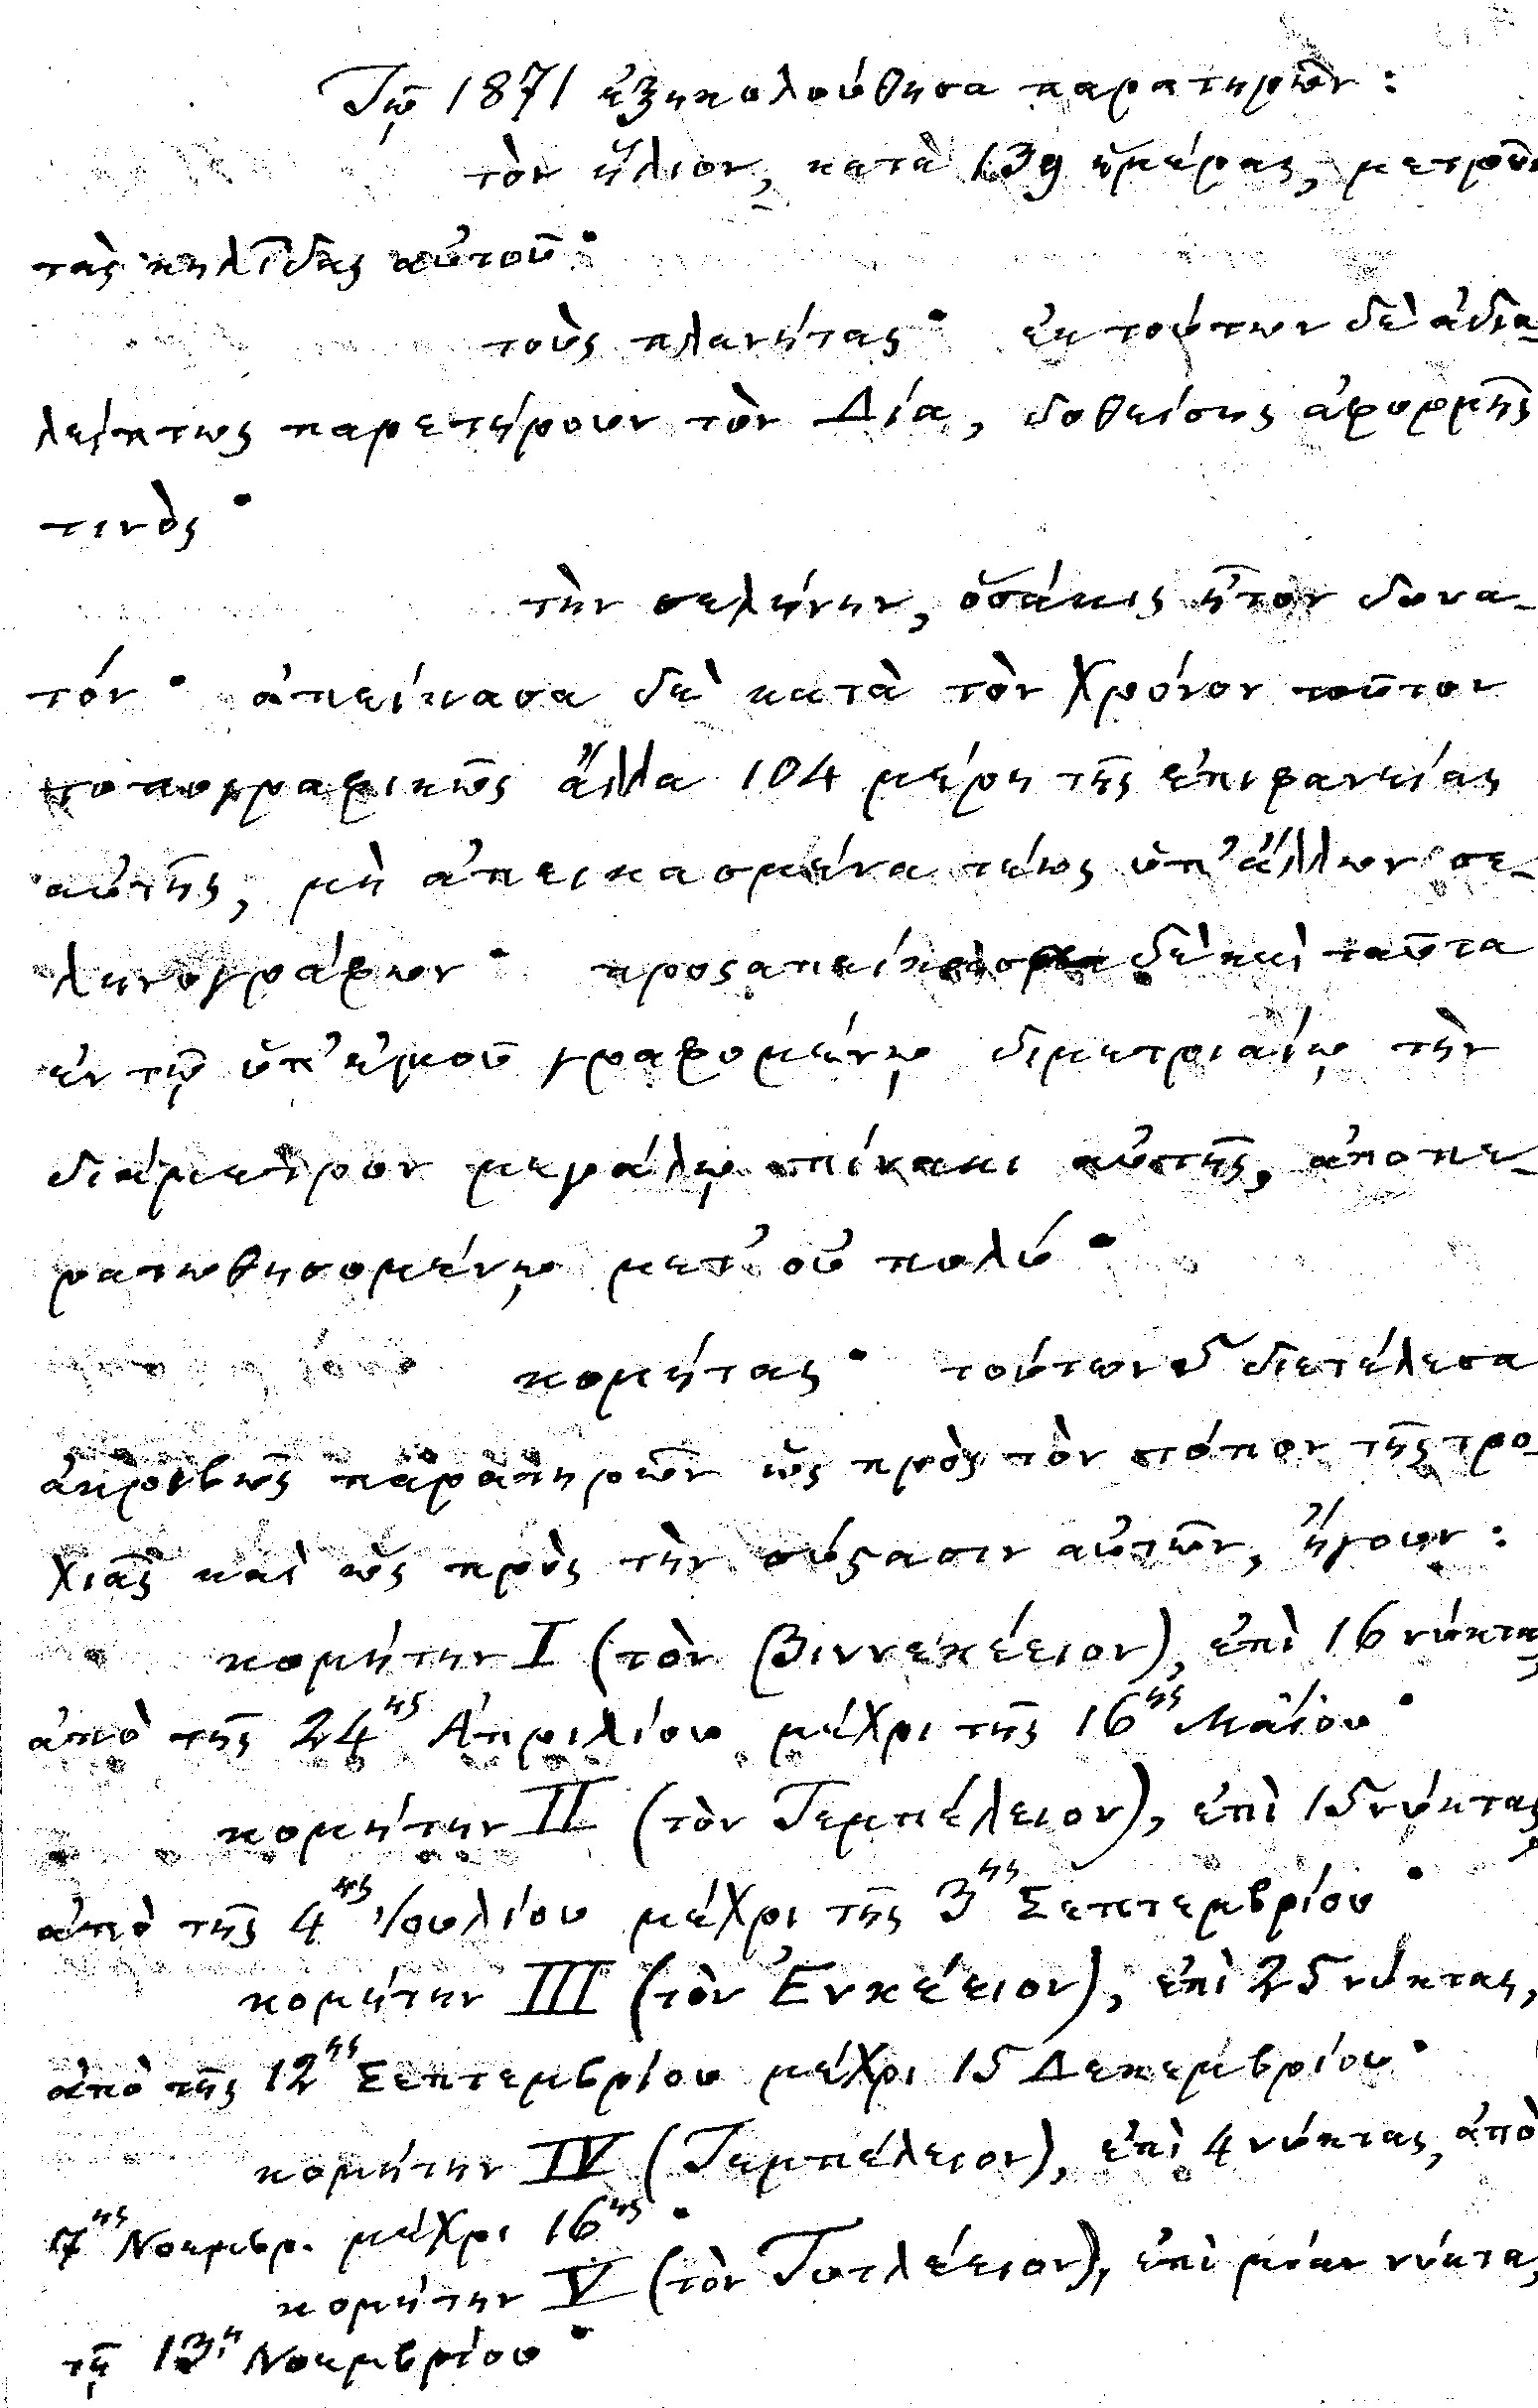 Τῷ 1871 ἐξηκολούθησα παρατηρῶν:
τὸν ἥλιον, κατὰ 139 ἡμέρας, μετρῶν
τὰς κηλῖδας αὐτοῦ·
τοὺς πλανήτας· ἐκ τούτων δὲ ἀδια-
λείπτως παρετήρουν τὸν Δία, δοθείσης ἀφορμῆς
τινὸς·
τὴν σελήνην, ὁσάκις ἦτον δυνα-
τόν· ἀπείκασα δὲ κατὰ τὸν χρόνον τοῦτον
τοπογραφικῶς ἄλλα 104 μέρη τῆς ἐπιφανείας
αὐτῆς, μὴ ἀπεικασμένα τέως ὑπ' ἄλλων σε-
ληνογράφων· δὲ καὶ ταῦτα
ἐν τῷ ὑπ' ἐμοῦ γραφομένῳ διμετριαίῳ τὴν
διάμετρον μεγάλῳ πίνακι αὐτῆς, ἀποπε-
ρατωθησομένῳ μετ' οὐ πολύ·
κομήτας· τούτων 5 διετέλεσα
ἀκριβῶς παρατηρῶν ὡς πρὸς τὸν τόπον τῆς τρο-
χιᾶς καὶ ὡς πρὸς τὴν σύστασιν αὐτῶν, ἤγουν:
κομήτην I (τὸν Βιννεκέειον), ἐπὶ 16 νύκτας
ἀπὸ τῆς 24ης Ἀπριλίου μέχρι τῆς 16ης Μαΐου·
κομήτην II (τὸν Τεμπέλειον), ἐπὶ 15 νύκτας
ἀπὸ τῆς 4ης Ἰουλίου μέχρι τῆς 3ης Σεπτεμβρίου·
κομήτην III (τὸν Ἐνκέειον), ἐπὶ 25 νύκτας,
ἀπὸ τῆς 12ης Σεπτεμβρίου μέχρι 15 Δεκεμβρίου·
κομήτην IV (Τεμπέλειον), ἐπὶ 4 νύκτας, ἀπὸ
7ης Νοεμβρ. μέχρι 16ης·
κομήτην V (τὸν Τυτλέειον), ἐπὶ μίαν νύκτα,
τῇ 13ῃ Νοεμβρίου·